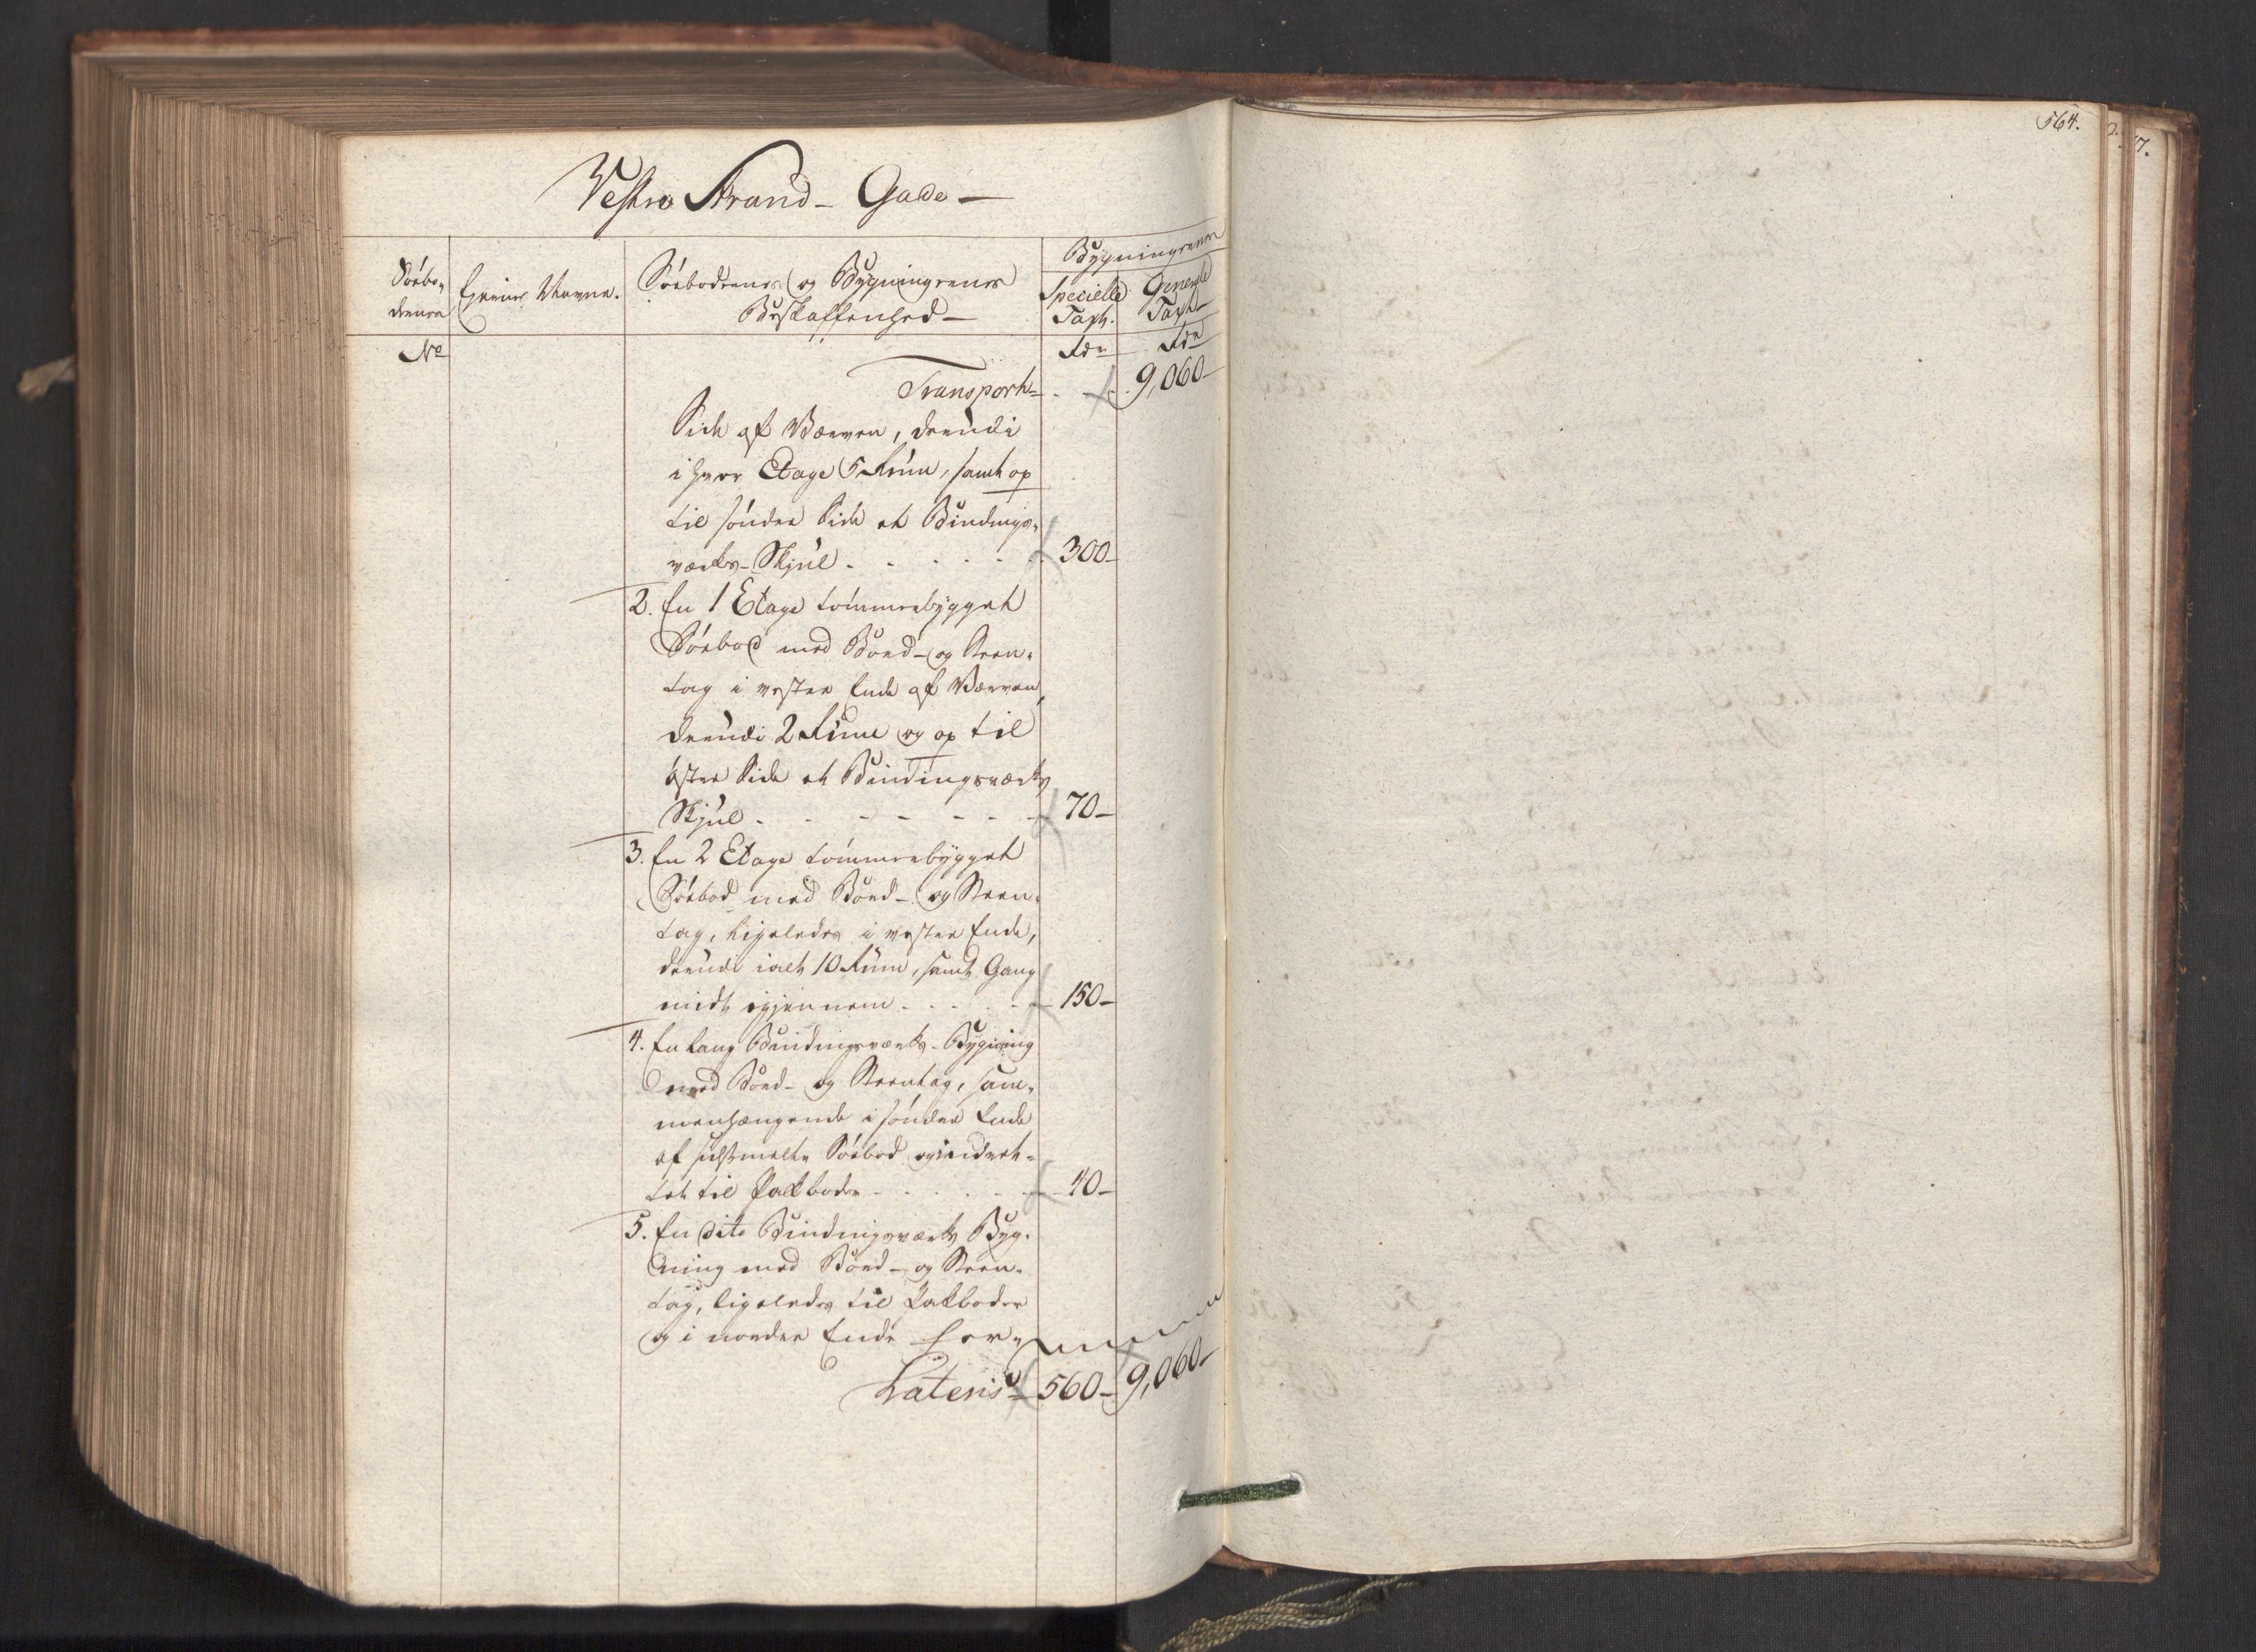 564.
Vestre Strand- Gade-
Bygningernes
Søebo-
dernes
Ejernes Navne.
Søebodernes og Bygningernes
Beskaffenhed-
Specielle
Taxt.
Generale
Taxt-
No
Rdr
Rdr
Transport- 9,060-
Side af Værven, derudi
i hver Etage 5 Rum, samt op
til søndre Side et Bindings-
værks-Skjul - - - - - 300-
2. En 1 Etage tømmerbygget
Søebod med Bord- og Steen-
tag i vestre Ende af Værven,
derudi 2 Rum og op til
østre Side et Bindingsværks
Skjul - - - - - - 70-
3. En 2 Etage tømmerbygget
Søebod med Bord- og Steen-
tag, ligeledes i vestre Ende,
derudi ialt 10 Rum, samt Gang
midt igjennem - - - - 150-
4. En lang Bindingsværks-Bygning
med Bord- og Steentag, sam-
menhængende i søndre Ende
af sidstmeldte Søebod og indret-
tet til Pakboder - - - - - 40-
5. En dito Bindingsværks Byg-
ning med Bord- og Steen-
tag, ligeledes til Pakboder
og i nordre Ende for-
Lateris 560- 9,060-